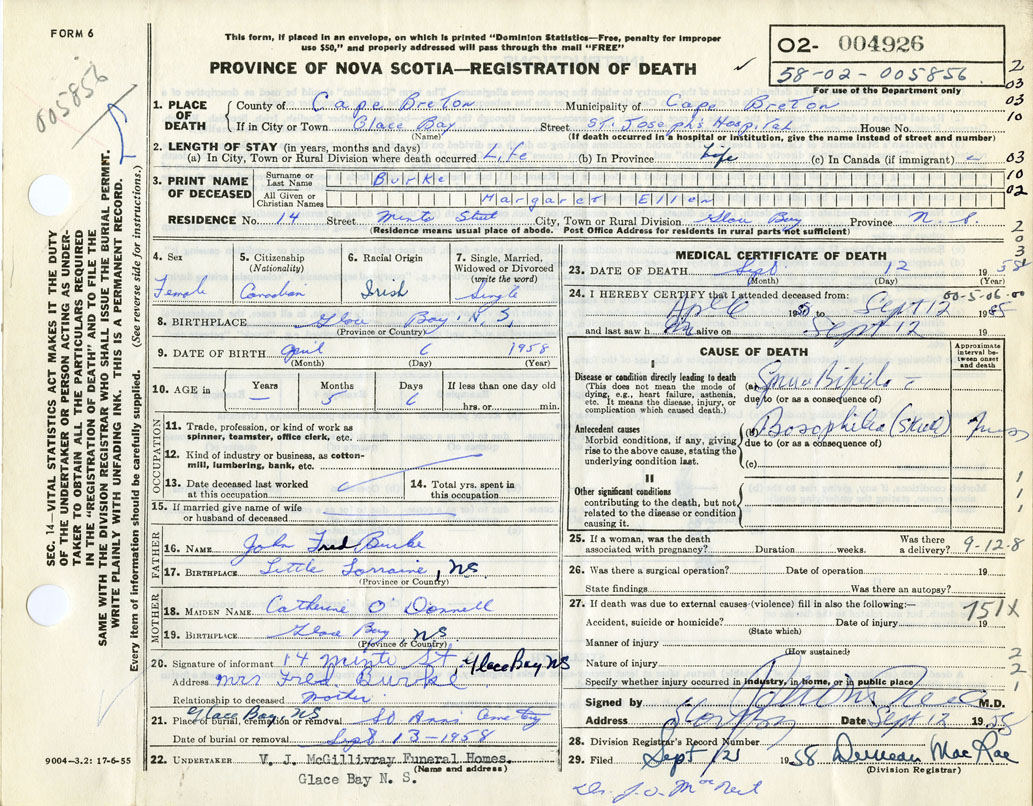 FORM 6
This form, if placed in an envelope, on which is printed "Dominion Statistics—Free, penalty for improper
use $50," and properly addressed will pass through the mail "FREE"
PROVINCE OF NOVA SCOTIA—REGISTRATION OF DEATH
02- 004926
58-02-005856
For use of the Department only
005856
2
03
03
10
03
10
02
2
0
3
2
SEC. 14—VITAL STATISTICS ACT MAKES IT THE DUTY
OF THE UNDERTAKER OR PERSON ACTING AS UNDER-
TAKER TO OBTAIN ALL THE PARTICULARS REQUIRED
IN THE "REGISTRATION OF DEATH" AND TO FILE THE
SAME WITH THE DIVISION REGISTRAR WHO SHALL ISSUE THE BURIAL PERMIT.
WRITE PLAINLY WITH UNFADING INK. THIS IS A PERMANENT RECORD.
Every item of information should be carefully supplied. (See reverse side for instructions.)
1. PLACE OF DEATH County of Cape Breton Municipality of Cape Breton
If in City or Town Glace Bay Street St. Joseph's Hospital House No.
(Name) (If death occurred in a hospital or institution, give the name instead of street and number)
2. LENGTH OF STAY (in years, months and days)
(a) In City, Town or Rural Division where death occurred Life (b) In Province Life (c) In Canada (if immigrant)
3. PRINT NAME OF DECEASED Surname or Last Name Burke
All Given or Christian Names Margaret Ellen
RESIDENCE No. 14 Street Minto Street City, Town or Rural Division Glace Bay Province N. S.
(Residence means usual place of abode. Post Office Address for residents in rural parts not sufficient)
4. Sex Female
5. Citizenship (Nationality) Canadian
6. Racial Origin Irish
7. Single, Married, Widowed or Divorced (write the word) Single
8. BIRTHPLACE Glace Bay N. S.
(Province or Country)
9. DATE OF BIRTH April 6 1958
(Month) (Day) (Year)
10. AGE in Years — Months 5 Days 6 If less than one day old
hrs. or min.
OCCUPATION
11. Trade, profession, or kind of work as
spinner, teamster, office clerk, etc.
12. Kind of industry or business, as cotton-
mill, lumbering, bank, etc.
13. Date deceased last worked at this occupation
14. Total yrs. spent in this occupation
15. If married give name of wife
or husband of deceased
FATHER
16. NAME John Fred Burke
17. BIRTHPLACE Little Lorraine, NS
(Province or Country)
MOTHER
18. MAIDEN NAME Catherine O'Donnell
19. BIRTHPLACE Glace Bay, NS
(Province or Country)
20. Signature of informant 14 Minto St, Glace Bay NS
Address Mrs Fred Burke
Relationship to deceased Mother
Glace Bay NS
21. Place of burial, cremation or removal St Anns Cemetery
Date of burial or removal Sept 13-1958
22. UNDERTAKER V. J. McGillivray Funeral Homes.
(Name and address)
Glace Bay N. S.
9004—3.2: 17-6-55
MEDICAL CERTIFICATE OF DEATH
23. DATE OF DEATH Sept 12 1958
(Month) (Day) (Year)
00-5-06-00
24. I HEREBY CERTIFY that I attended deceased from:
Apl 6 1958 to Sept 12 1958
and last saw h alive on Sept 12 19
CAUSE OF DEATH
Approximate interval between onset and death
I
Disease or condition directly leading to death
(This does not mean the mode of
dying, e.g., heart failure, asthenia,
etc. It means the disease, injury, or
complication which caused death.)
(a) Spina Bifida
due to (or as a consequence of)
Antecedent causes
Morbid conditions, if any, giving
rise to the above cause, stating the
underlying condition last.
(b)
due to (or as a consequence of)
(c)
II
Other significant conditions
contributing to the death, but not
related to the disease or condition
causing it.
1
1
1
25. If a woman, was the death
associated with pregnancy? Duration weeks. Was there a delivery? 9-12-8
26. Was there a surgical operation? Date of operation 19
State findings Was there an autopsy?
27. If death was due to external causes (violence) fill in also the following:—
751X
Accident, suicide or homicide? Date of injury 19
(State which)
Manner of injury
(How sustained)
Nature of injury
2
2
1
Specify whether injury occurred in industry, in home, or in public place
Signed by M.D.
Address Glace Bay Date Sept 12 1958
28. Division Registrar's Record Number
29. Filed Sept 12 1958 Duncan MacRae
(Division Registrar)
Dr. J. O. MacNeil